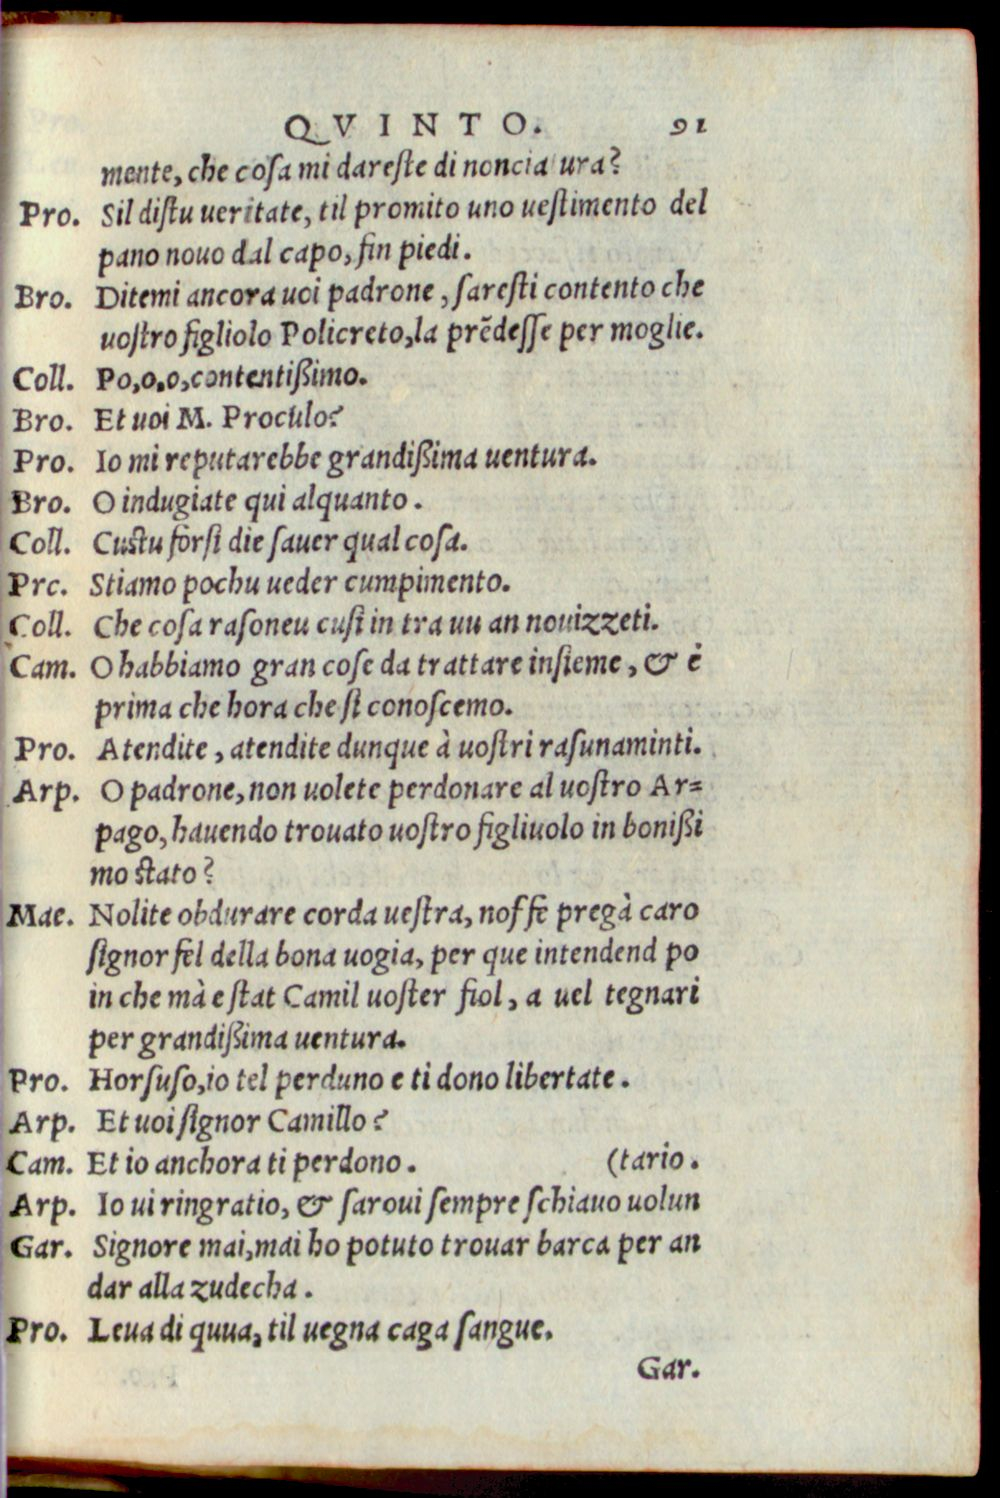 QVINTO. 91
mente, che coſa mi dareſte di noncia ura?
Pro. Sil diſtu ueritate, til promito uno ueſtimento del
pano nouo dal capo, fin piedi.
Bro. Ditemi ancora uoi padrone, ſareſti contento che
uoſtro figliolo Policreto, la prẽdeſſe per moglie.
Coll. Po,o,o,contentißimo.
Bro. Et uoi M. Proculo?
Pro. Io mi reputarebbe grandißima uentura.
Bro. O indugiate qui alquanto.
Coll. Cuſtu forſi die ſauer qual coſa.
Pro. Stiamo pochu ueder cumpimento.
Coll. Che coſa raſoneu cuſi in tra uu an nouizzeti.
Cam. O habbiamo gran coſe da trattare inſieme, & è
prima che hora che ſi conoſcemo.
Pro. Atendite, atendite dunque à uoſtri raſunaminti.
Arp. O padrone, non uolete perdonare al uoſtro Ar=
pago, hauendo trouato uoſtro figliuolo in bonißi
mo ſtato?
Mae. Nolite obdurare corda ueſtra, noſ fè pregà caro
ſignor fèl della bona uogia, per que intendend po
in che mà e ſtat Camil uoſter fiol, a uel tegnari
per grandißima uentura.
Pro. Horſuſo, io tel perduno e ti dono libertate.
Arp. Et uoi ſignor Camillo?
Cam. Et io anchora ti perdono. (tario.
Arp. Io ui ringratio, & ſaroui ſempre ſchiauo uolun
Gar. Signore mai, mai ho potuto trouar barca per an
dar alla zudecha.
Pro. Leua di quua, til uegna caga ſangue.
Gar.